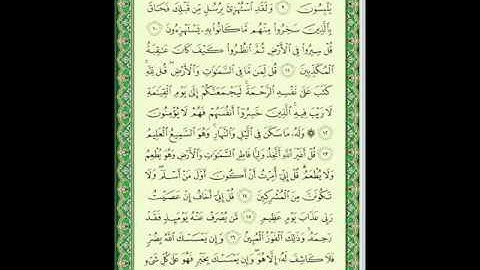 يَلْبِسُونَ ٩ وَلَقَدِ اسْتُهْزِئَ بِرُسُلٍ مِّن قَبْلِكَ فَحَاقَ
بِالَّذِينَ سَخِرُوا مِنْهُم مَّا كَانُوا بِهِ يَسْتَهْزِءُونَ ١٠
قُلْ سِيرُوا فِي الْأَرْضِ ثُمَّ انظُرُوا كَيْفَ كَانَ عَاقِبَةُ
الْمُكَذِّبِينَ ١١ قُل لِّمَن مَّا فِي السَّمَاوَاتِ وَالْأَرْضِ قُل لِّلَّهِ
كَتَبَ عَلَىٰ نَفْسِهِ الرَّحْمَةَ لَيَجْمَعَنَّكُمْ إِلَىٰ يَوْمِ الْقِيَامَةِ
لَا رَيْبَ فِيهِ الَّذِينَ خَسِرُوا أَنفُسَهُمْ فَهُمْ لَا يُؤْمِنُونَ
١٢ ۞ وَلَهُ مَا سَكَنَ فِي اللَّيْلِ وَالنَّهَارِ وَهُوَ السَّمِيعُ الْعَلِيمُ
١٣ قُلْ أَغَيْرَ اللَّهِ أَتَّخِذُ وَلِيًّا فَاطِرِ السَّمَاوَاتِ وَالْأَرْضِ وَهُوَ يُطْعِمُ
وَلَا يُطْعَمُ قُلْ إِنِّي أُمِرْتُ أَنْ أَكُونَ أَوَّلَ مَنْ أَسْلَمَ وَلَا
تَكُونَنَّ مِنَ الْمُشْرِكِينَ ١٤ قُلْ إِنِّي أَخَافُ إِنْ عَصَيْتُ
رَبِّي عَذَابَ يَوْمٍ عَظِيمٍ ١٥ مَّن يُصْرَفْ عَنْهُ يَوْمَئِذٍ فَقَدْ
رَحِمَهُ وَذَٰلِكَ الْفَوْزُ الْمُبِينُ ١٦ وَإِن يَمْسَسْكَ اللَّهُ بِضُرٍّ
فَلَا كَاشِفَ لَهُ إِلَّا هُوَ وَإِن يَمْسَسْكَ بِخَيْرٍ فَهُوَ عَلَىٰ كُلِّ شَيْءٍ